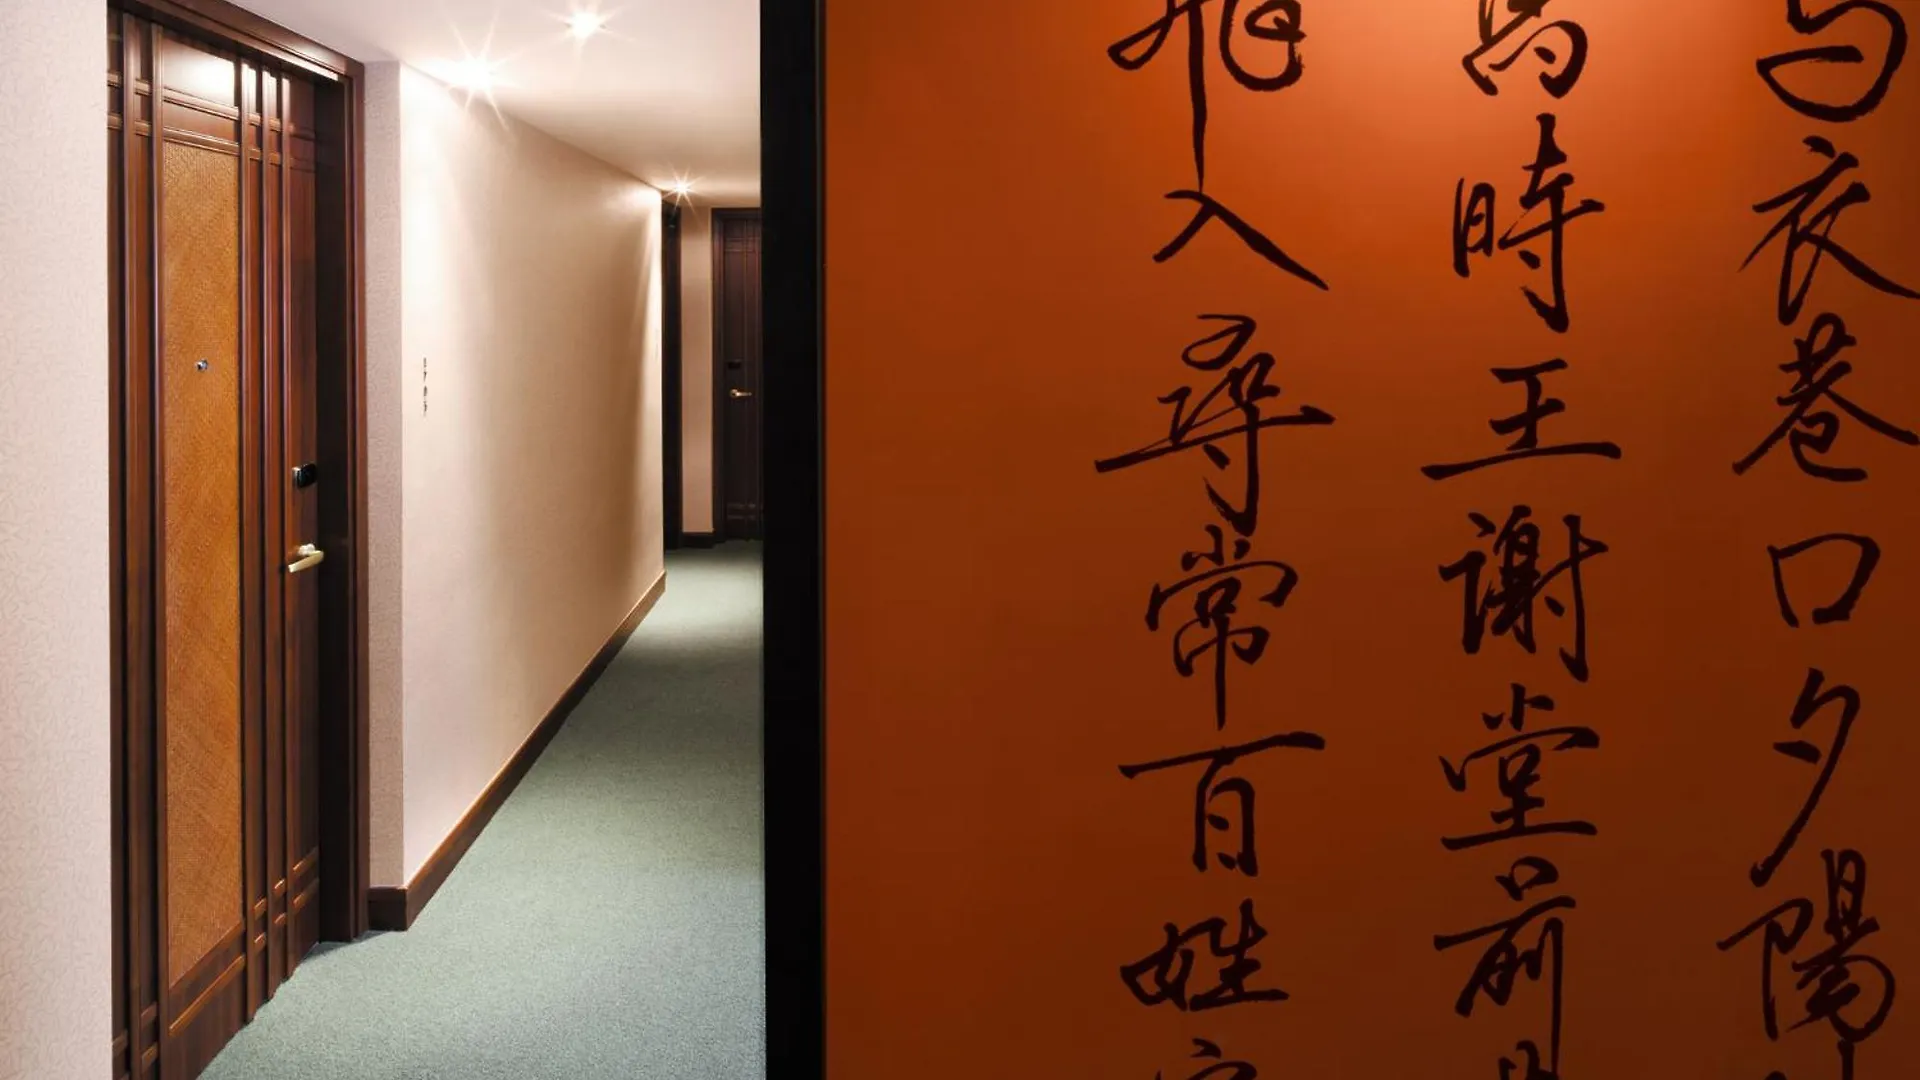 烏衣巷口夕陽
時王謝堂前
飛入尋常百姓